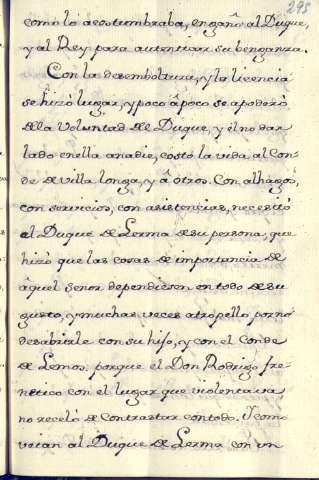 295
como lo acostumbraba, engañó al Duque,
y al Rey para autentizar su benganza.
Con la desemboltura, y la licencia
se hizó lugar, y poco â poco se apoderó
dela Voluntad del Duque, y el no dar
lado en ella anadie, costó la vida al Con
de de villa longa, y â otros. Con alhagos,
con servicios, con asistencias, necesitó
al Duque de Lerma de su persona, que
hizó que las cosas de importancia de
aquel Señor dependiesen en todo de su
gusto, y muchas veces atropelló por nó
desabrirle con su hijo, y con el Conde
de Lemos, porque el Don Rodrigo, fre
netico con el lugar que violentava
no receló de contrastar con todo. Y como
veían al Duque de Lerma con un